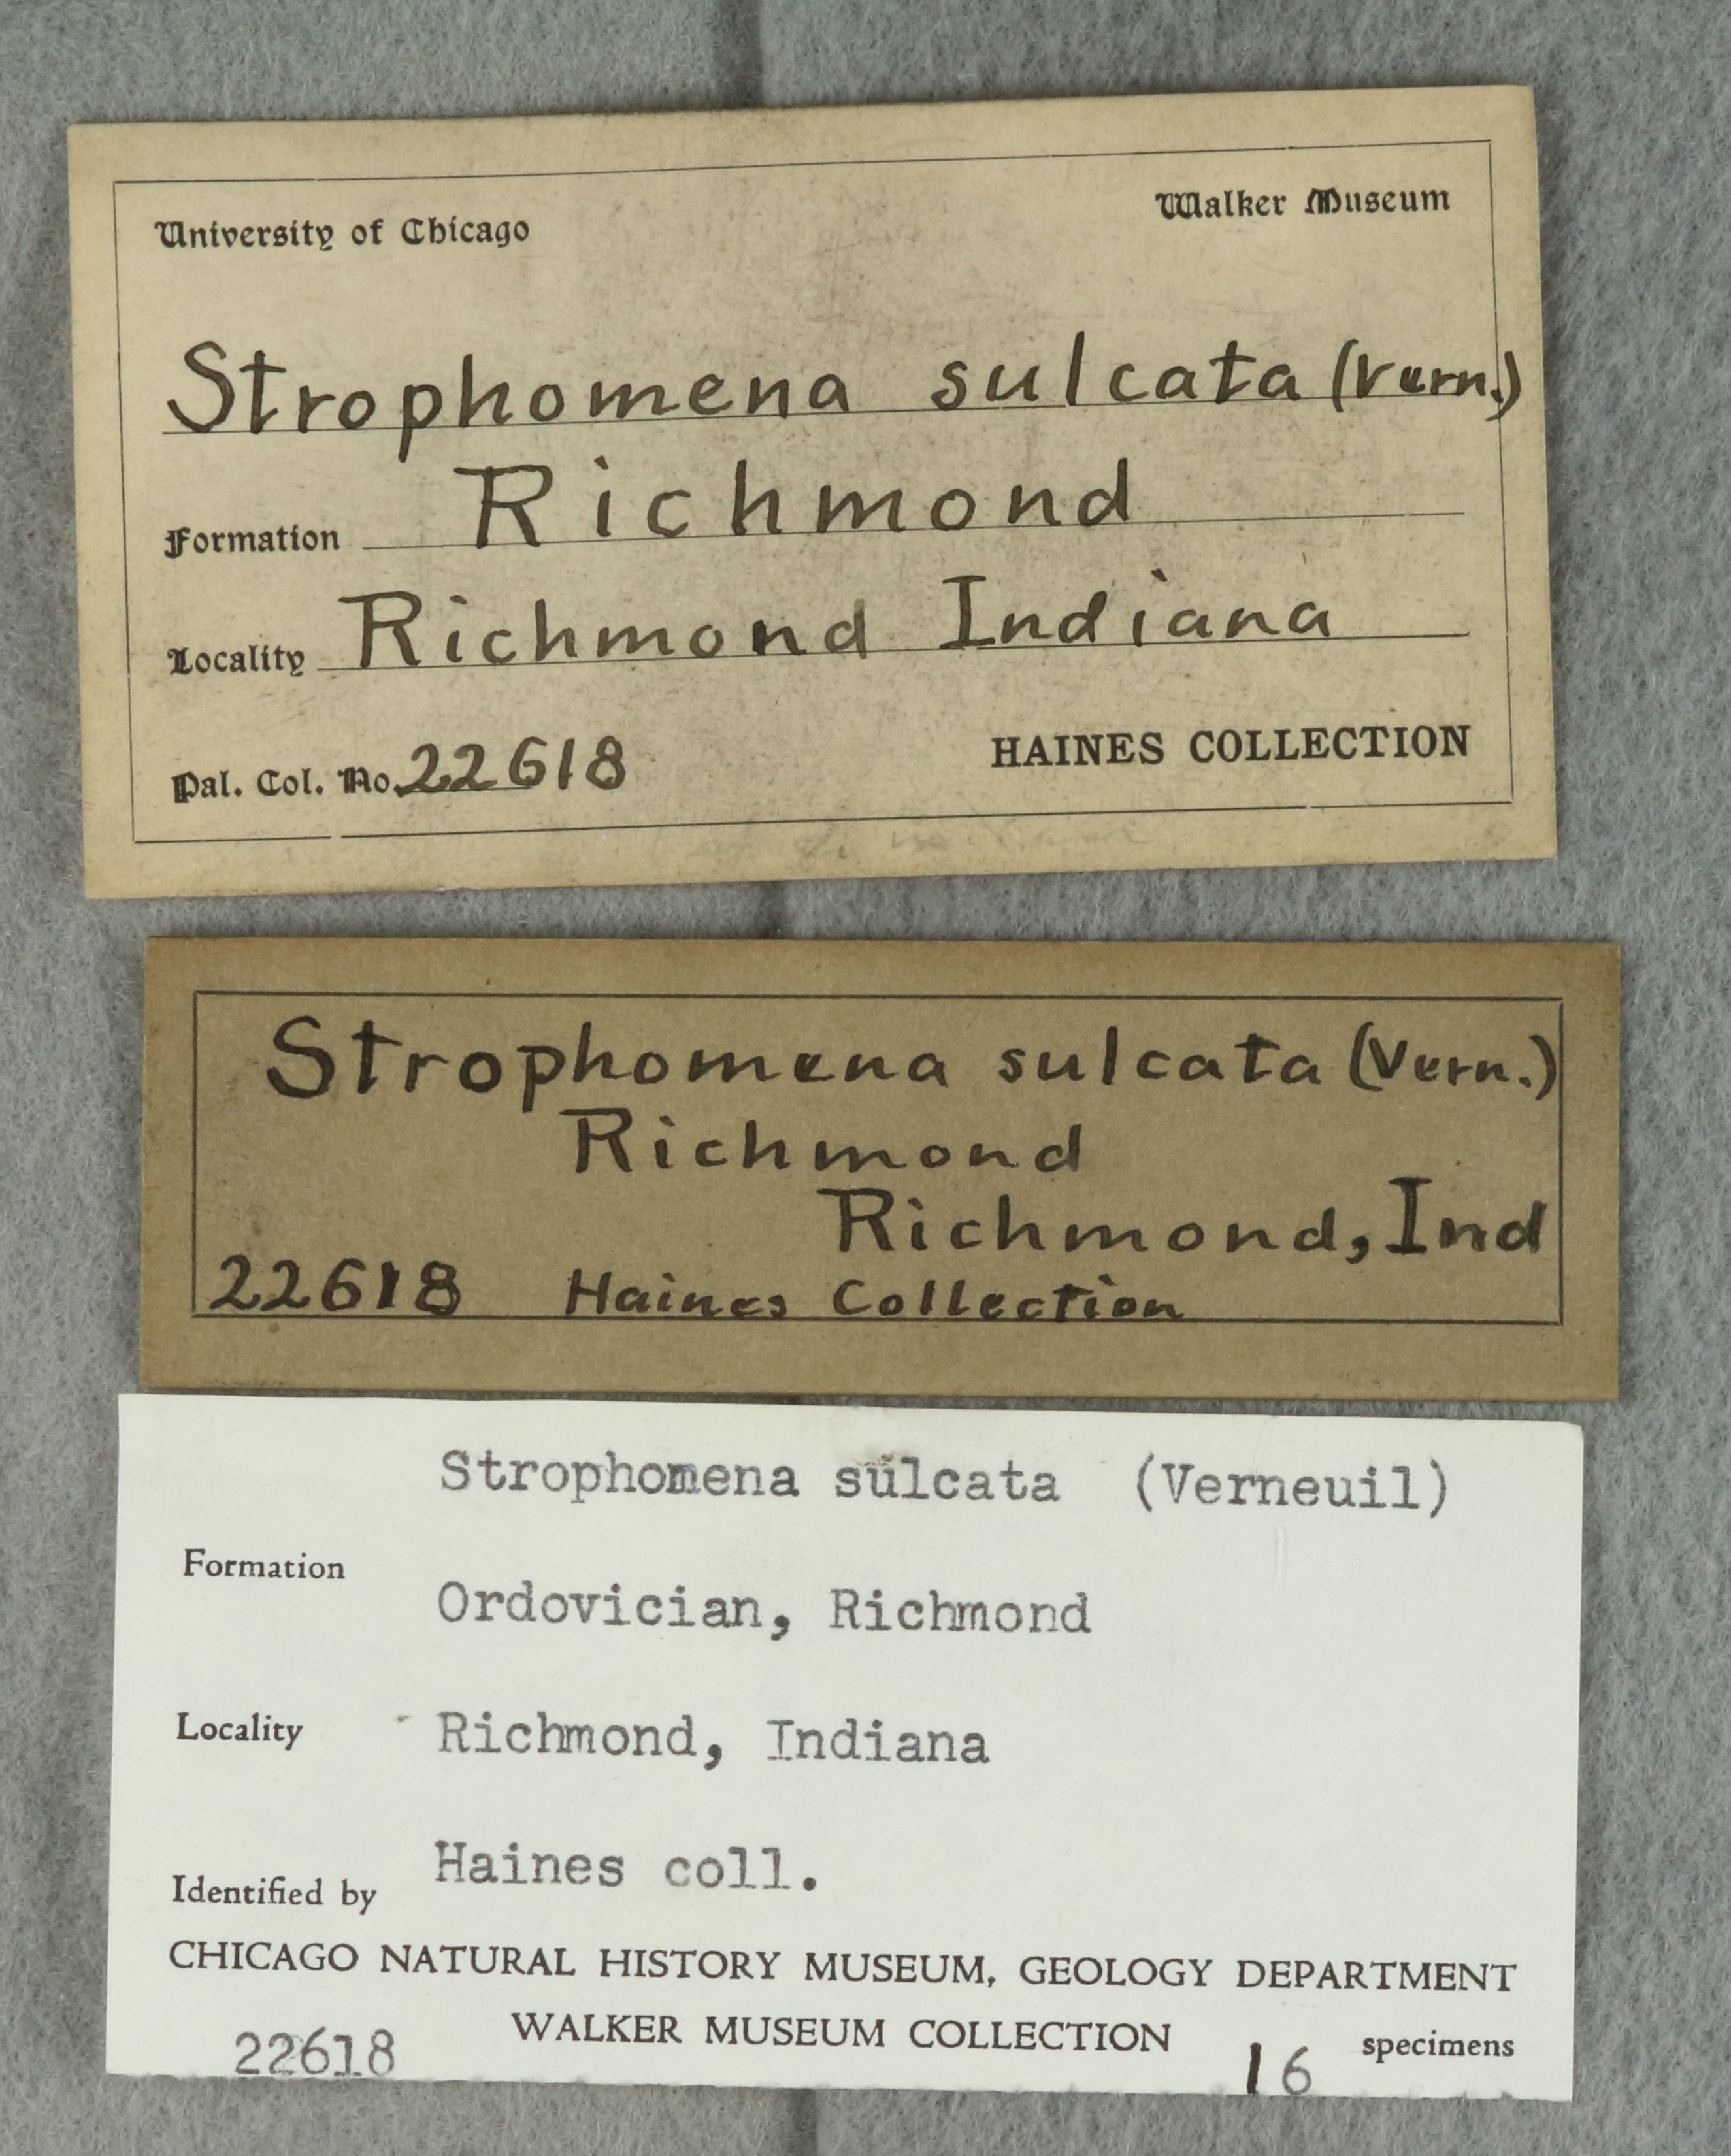 University of Chicago Walker Museum
Strophomena sulcata (Vern.)
Formation Richmond
Locality Richmond Indiana
Pal. Col. No. 22618 HAINES COLLECTION
Strophomena sulcata (Vern.)
Richmond
Richmond, Ind
22618 Haines Collection
Strophomena sulcata (Verneuil)
Formation Ordovician, Richmond
Locality Richmond, Indiana
Identified by Haines coll.
CHICAGO NATURAL HISTORY MUSEUM, GEOLOGY DEPARTMENT
WALKER MUSEUM COLLECTION
22618 16 specimens